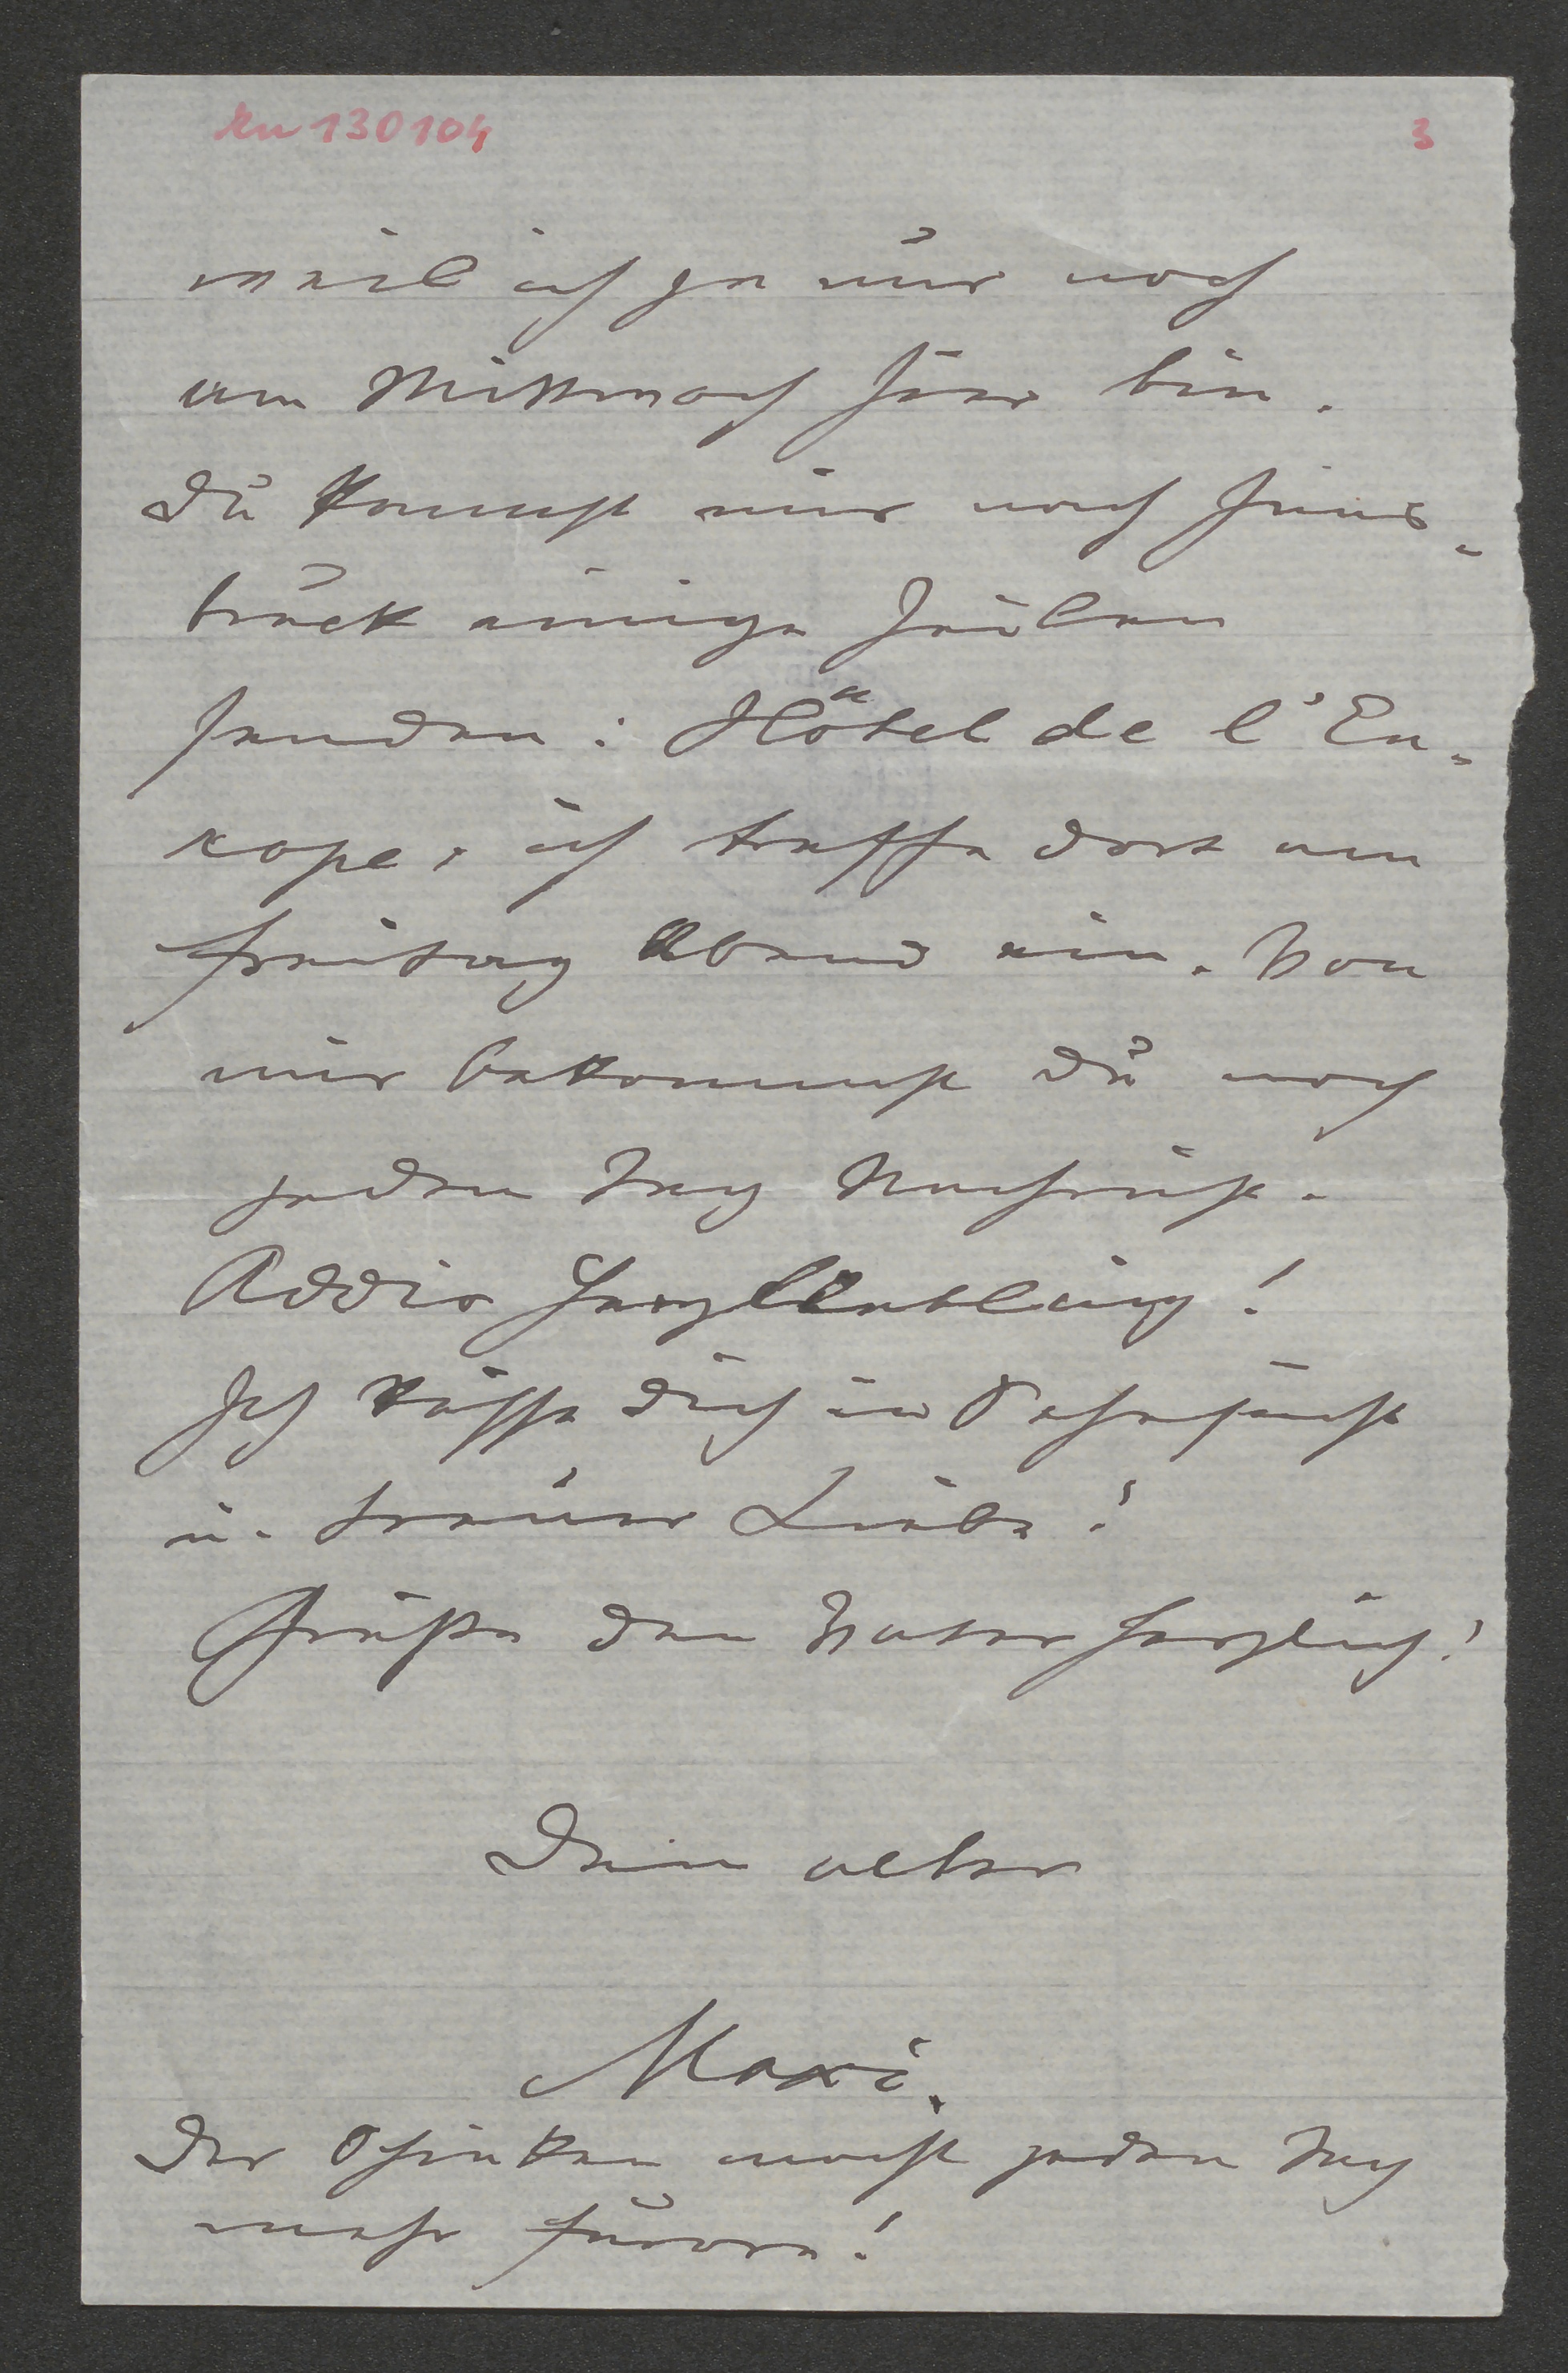 Ku 130104
3
weil ich ja nur noch
am Mittwoch hier bin.
Du kannst mir nach Inns-
bruck einige Zeilen
senden: Hôtel de l'Eu-
rope, ich treffe dort am
Freitag Abend ein. Von
mir bekommst Du noch
jeden Tag Nachricht.
Addio Herzliebling!
Ich küsse Dich in Sehnsucht
u. treuer Liebe!
Grüße den Vater herzlich!
Dein alter
Maxi.
Der Schinken macht jeden Tag
mehr furore!